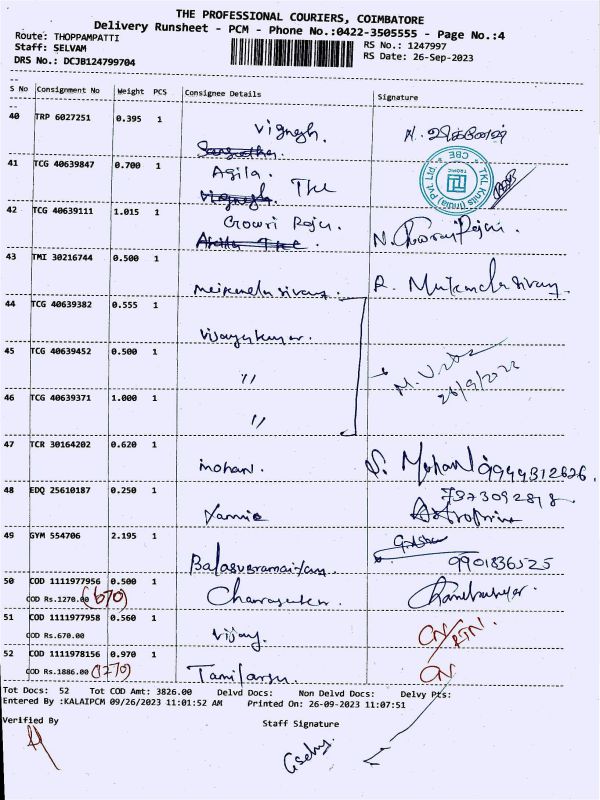 THE PROFESSIONAL COURIERS, COIMBATORE
Delivery Runsheet - PCM - Phone No.:0422-3505555 - Page No.:4
Route: THOPPAMPATTI
Staff: SELVAM
DRS No.: DCJB124799704
RS No.: 1247997
RS Date: 26-Sep-2023
S No Consignment No Weight PCS Consignee Details Signature
40 TRP 6027251 0.395 1
Vignesh.
41 TCG 40639847 0.700 1
Agila.
TKL
TKL Knits (India) Pvt. Ltd
CBE
42 TCG 40639111 1.015 1
Gowri Raju.
43 TMI 30216744 0.500 1
R. Meikandasivam.
44 TCG 40639382 0.555 1
Vijayakumar.
45 TCG 40639452 0.500 1
"
26/9/2023
46 TCG 40639371 1.000 1
"
47 TCR 30164202 0.620 1
mohan. S. Mohan 9944312626.
48 EDQ 25610187 0.250 1
49 GYM 554706 2.195 1
9901836525
50 COD 1111977956 0.500 1
COD Rs.1270.00 (670)
51 COD 1111977958 0.560 1
COD Rs.670.00 Vijay. CN/RTN.
52 COD 1111978156 0.970 1
COD Rs.1886.00 (1270) CN
Tot Docs: 52 Tot COD Amt: 3826.00 Delvd Docs: Non Delvd Docs: Delvy Pts:
Entered By :KALAIPCM 09/26/2023 11:01:52 AM Printed On: 26-09-2023 11:07:51
Verified By Staff Signature